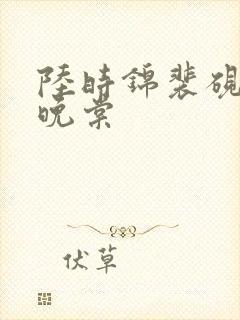 陸時錦裴硯
晚棠
伏草